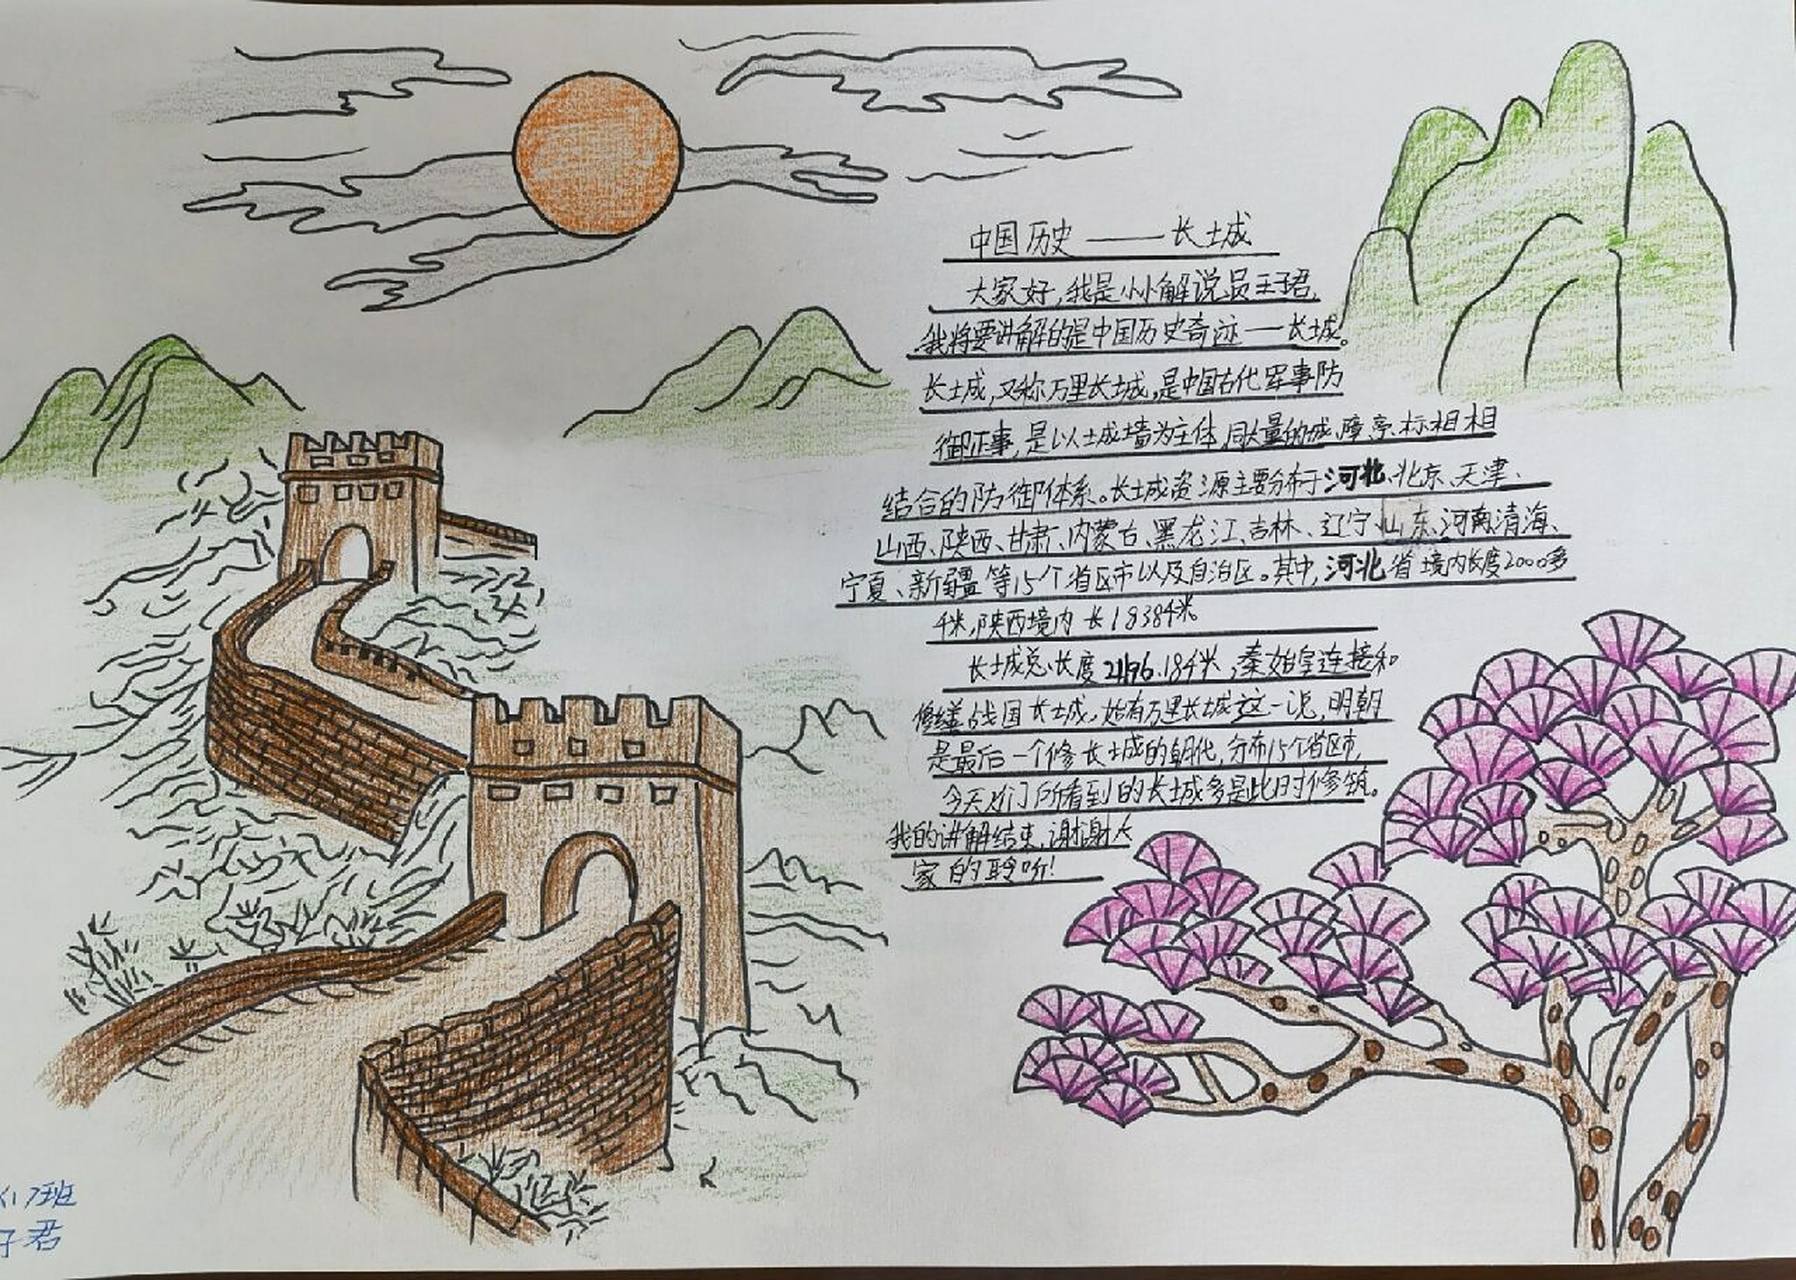 中国历史——长城
大家好,我是小小解说员王子君,
我将要讲解的是中国历史奇迹——长城。
长城,又称万里长城,是中国古代军事防
御工事,是以城墙为主体,同大量的城、障、亭、标相相
结合的防御体系。长城资源主要分布于河北、北京、天津、
山西、陕西、甘肃、内蒙古、黑龙江、吉林、辽宁、山东、河南、清海、
宁夏、新疆等15个省区市以及自治区。其中,河北省境内长度2000多
千米,陕西境内长1838千米
长城总长度千米,秦始皇连接和
修缮战国长城,始有万里长城这一说,明朝
是最后一个修长城的朝代,分布15个省区市,
今天人们所看到的长城多是此时修筑。
我的讲解结束,谢谢大
家的聆听!
班
子君